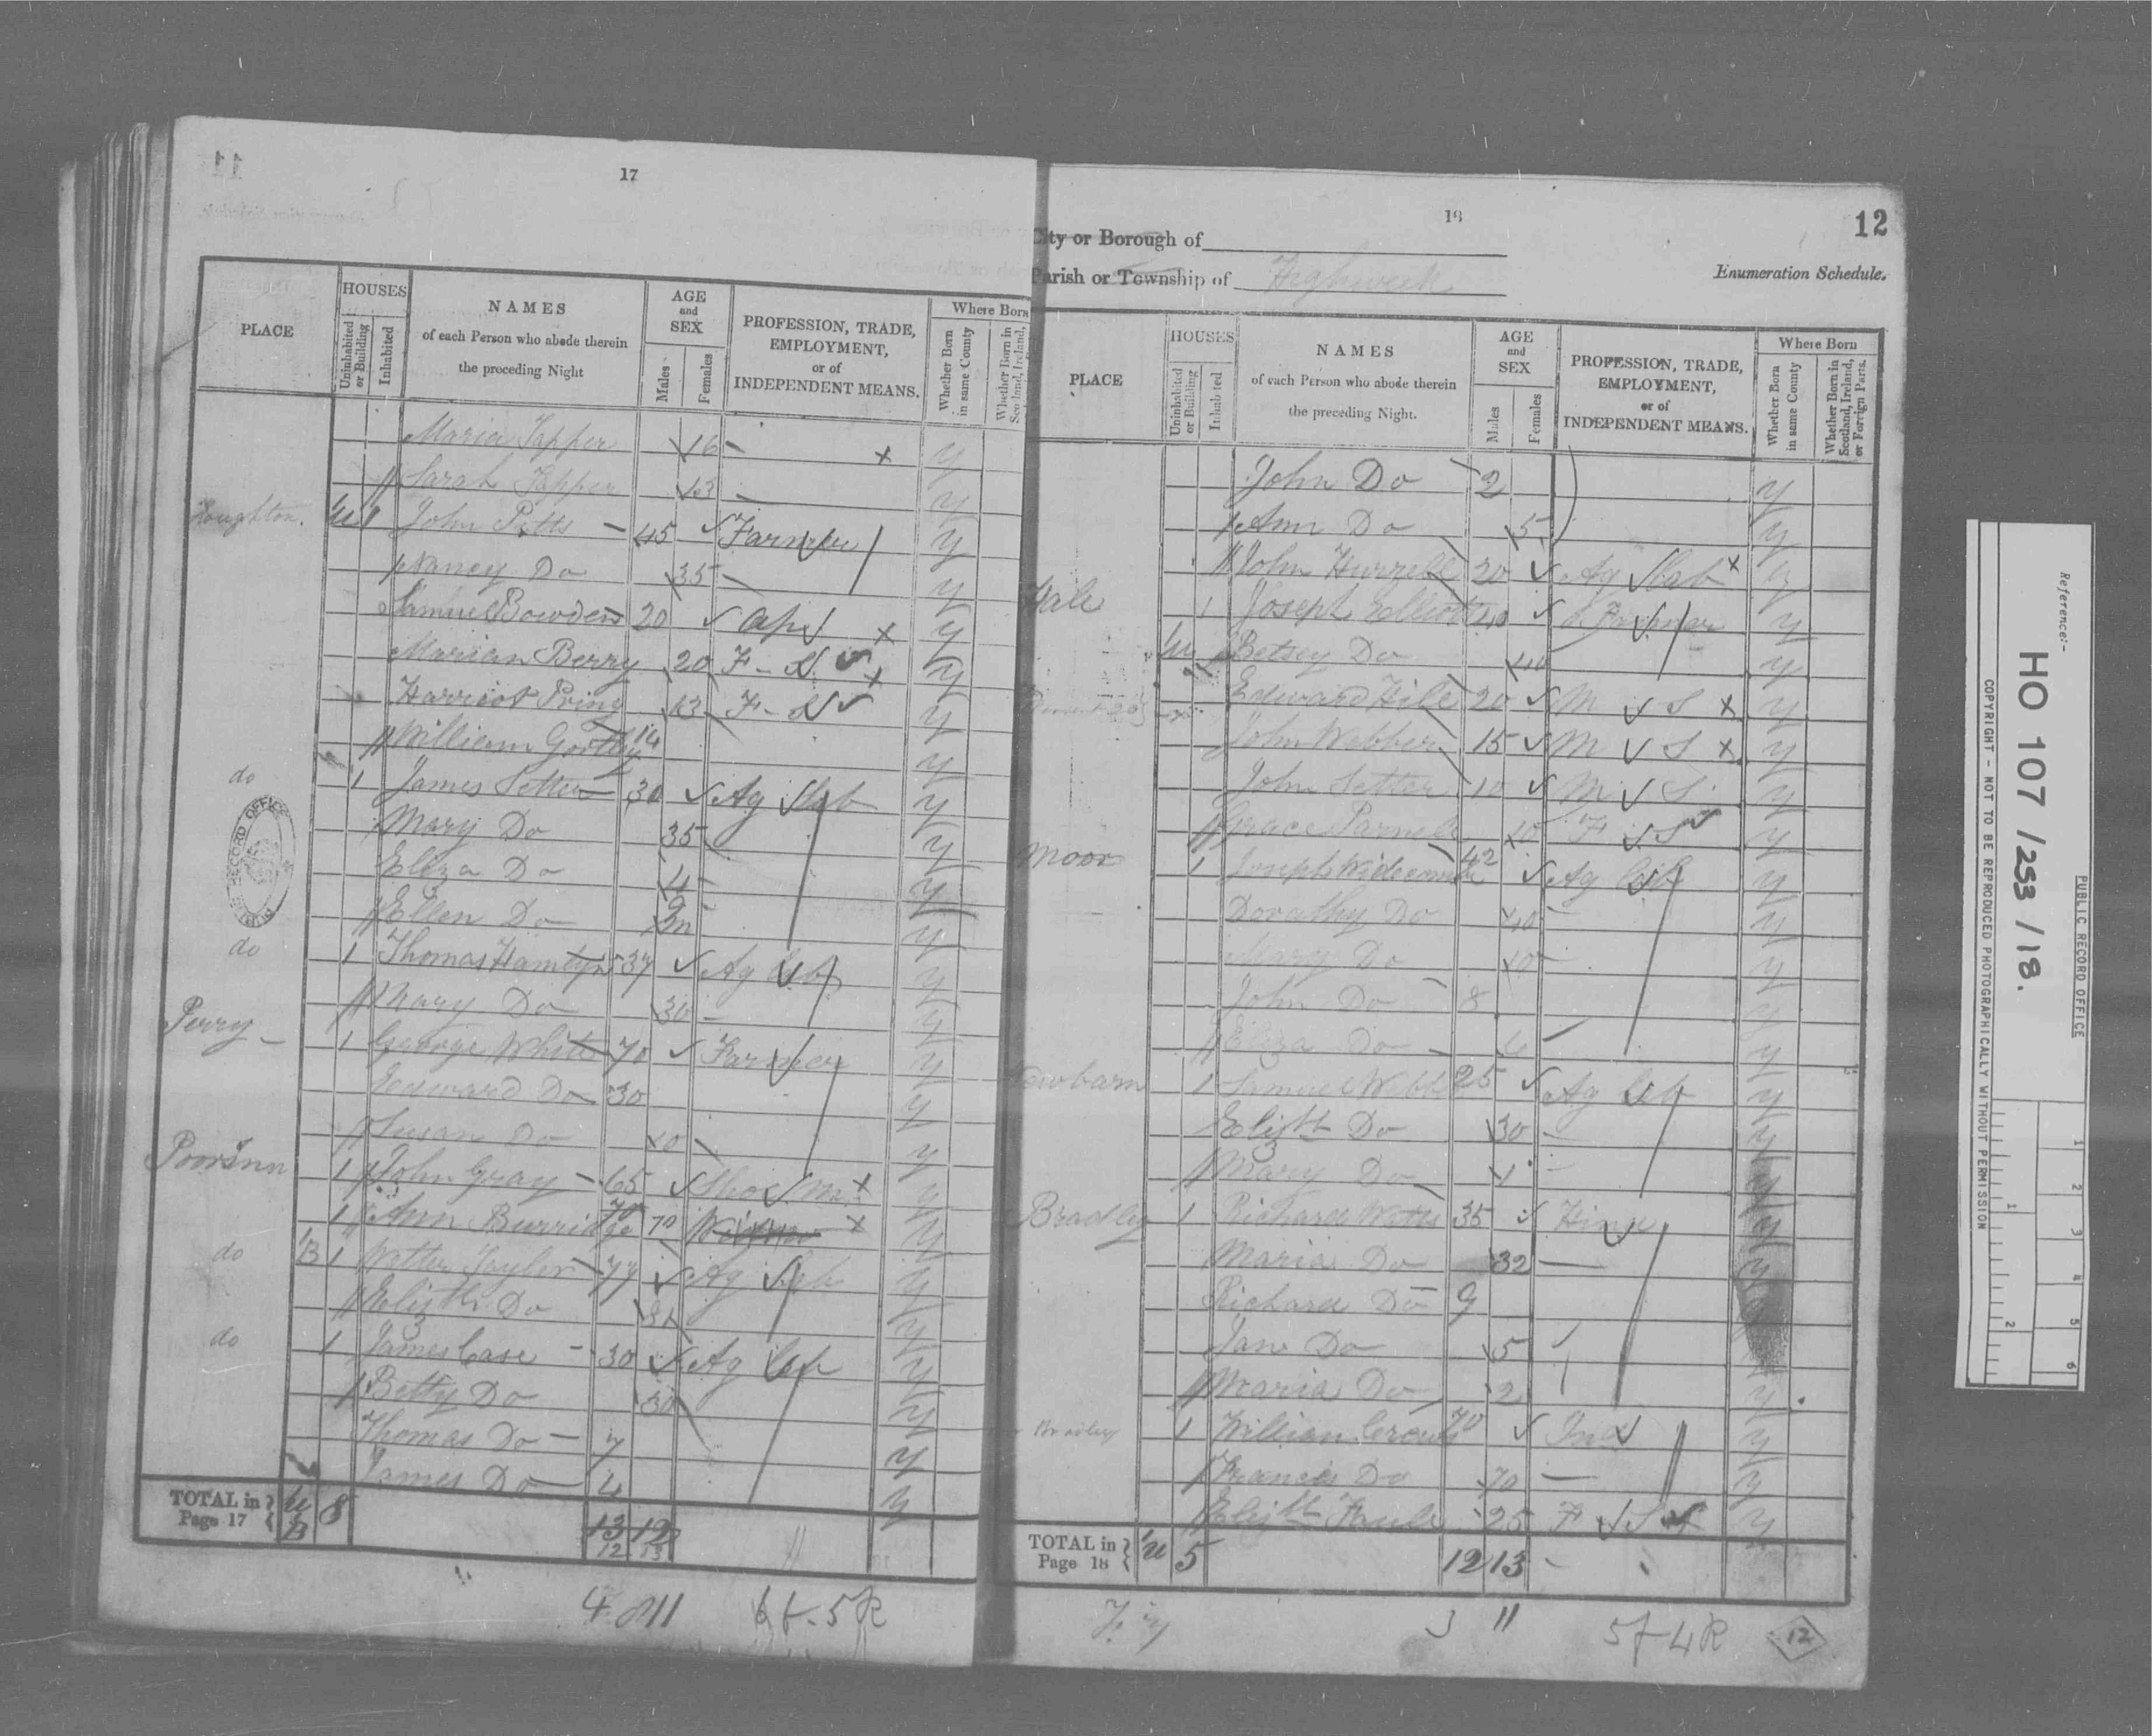 17
PLACE
HOUSES
Uninhabited or Building
Inhabited
NAMES
of each Person who abode therein
the preceding Night
AGE and SEX
Males
Females
PROFESSION, TRADE, EMPLOYMENT, or of INDEPENDENT MEANS.
Where Born
Whether Born in same County
Whether Born in Scotland, Ireland,
Maria Tapper 16 y
Sarah Tapper 13 y
Houghton. 1 John Potts 45 Farmer y
Nancy Do 35 y
Samuel Bowden 20 Ap y
Marian Berry 20 F S y
Harriot Pring 13 F S y
William 14 y
do 1 James Setter 30 Ag Lab y
Mary Do 35 y
Eliza Do 4 y
Ellen Do y
do 1 Thomas Hamlyn 37 Ag Lab y
Mary Do 30 y
Perry 1 George White 70 Farmer y
Edward Do 30 y
Susan Do 40 y
1 John Gray 65 Shoe M y
1 Ann Burridge 70 y
do 1B 1 Walter Taylor 77 Ag Lab y
Elizth Do y
do 1 James Case 30 Ag Lab y
Betty Do 30 y
Thomas Do 7 y
James Do 4 y
TOTAL in Page 17 8 13 12
12 13
12
18
City or Borough of
Parish or Township of Highweek
Enumeration Schedule.
PLACE
HOUSES
Uninhabited or Building
Inhabited
NAMES
of each Person who abode therein
the preceding Night.
AGE and SEX
Males
Females
PROFESSION, TRADE, EMPLOYMENT, or of INDEPENDENT MEANS.
Where Born
Whether Born in same County
Whether Born in Scotland, Ireland, or Foreign Parts.
John Do 2 y
Ann Do 5 y
John Hurrell 20 Ag Lab y
Hale 1 Joseph Elliott 40 Farmer y
Betsey Do 40 y
Edward Hill 20 M S y
John Webber 15 M S y
John Setter 10 M S y
Grace Parnell F S y
Moor 1 Joseph Widecombe 42 Ag Lab y
Dorathy Do 40 y
Mary Do 10 y
John Do 8 y
Eliza Do 6 y
Newbarn 1 Samuel Webber 25 Ag Lab y
Elizth Do 30 y
Mary Do 1 y
Bradley 1 Richard Watts 35 Hind y
Maria Do 32 y
Richard Do 9
Jane Do 5 y
Maria Do 2 y
Bradley 1 William Crews 70 Ind y
Frances Do 70 y
Elizth 25 F S y
TOTAL in Page 18 5 12 13
5f 4R
12
Reference:-
HO 107 /253 /18.
PUBLIC RECORD OFFICE
COPYRIGHT - NOT TO BE REPRODUCED PHOTOGRAPHICALLY WITHOUT PERMISSION
1 2 3 4 5 6
1 2